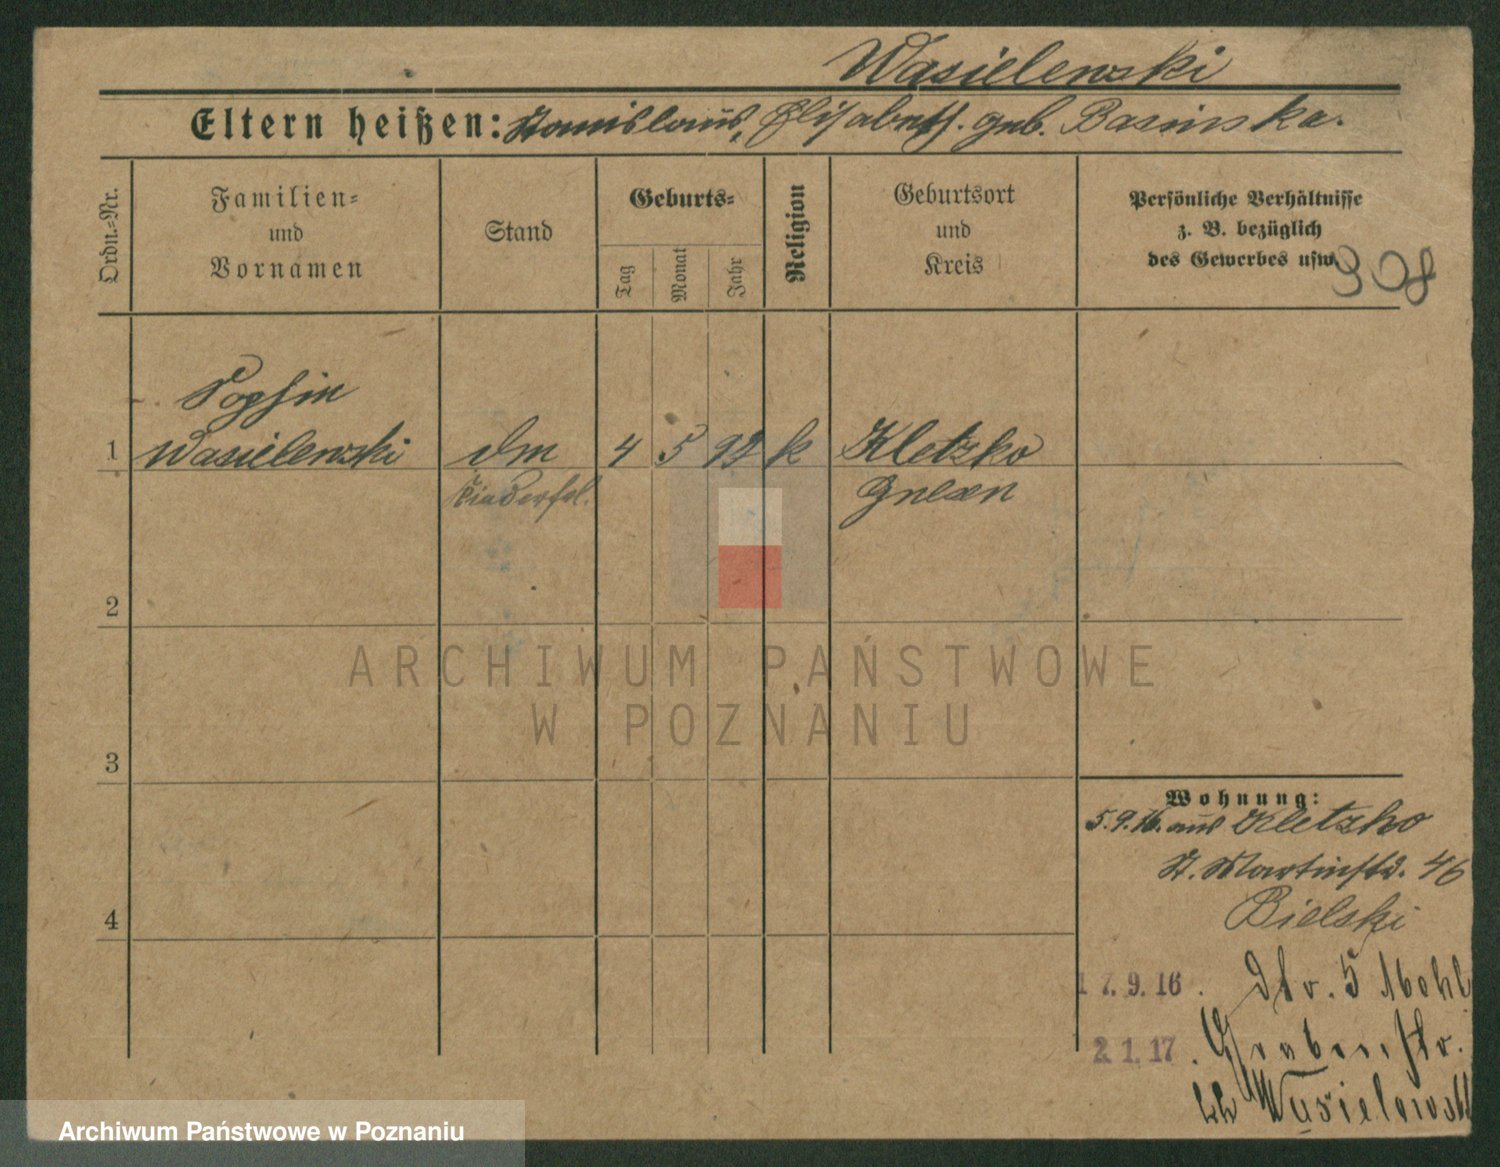 Wasielewski
Eltern heißen: Stanislaus, Elisabeth. geb. Basinska.
Ordn.-Nr.
Familien-
und
Vornamen
Stand
Geburts-
Tag
Monat
Jahr
Religion
Geburtsort
und
Kreis
Persönliche Verhältnisse
z. B. bezüglich
des Gewerbes usw.
308
Sophie
1 Wasielewski
4 5 92 k Kletzko
Kinderfrl.
Gnesen
2
ARCHIWUM PAŃSTWOWE
W POZNANIU
3
Wohnung:
5.9.16. aus Kletzko
St. Martinstr. 46
4
Bielski
17.9.16. 5
2.1.17. Grabenstr.
Wasielewski
Archiwum Państwowe w Poznaniu